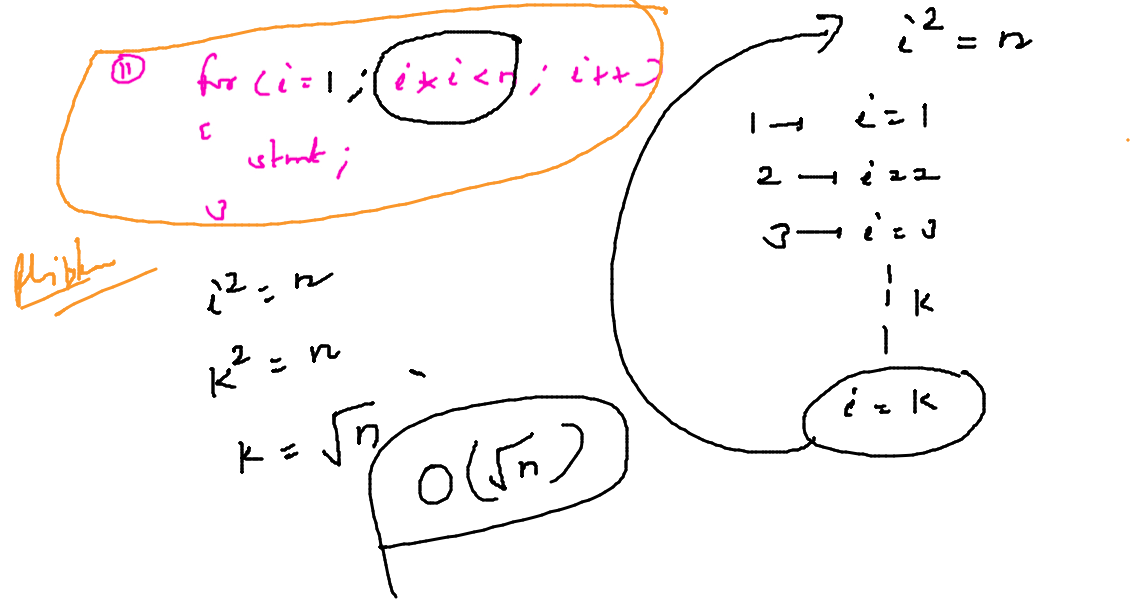 11 for (i=1 ; i*i<n ; i++)
{
stmt ;
}
i² = n
k² = n
k = √n
O(√n)
i² = n
1 → i = 1
2 → i = 2
3 → i = 3
k
i = k